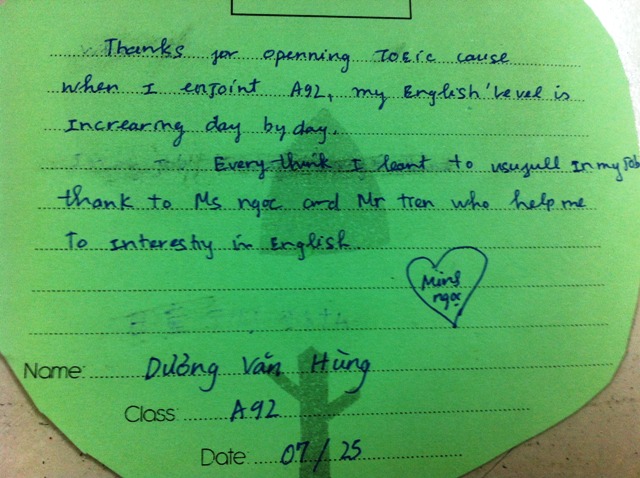 Thanks for openning TOEIC cause
when I enjoint A92, my English level is
Increaring day by day.
Every think I leant to usuyull in my job
thank to Ms ngọc and Mr tien who help me
To interestry in English.
Minh
ngọc
Name: Dương Văn Hùng
Class: A92
Date: 07/25